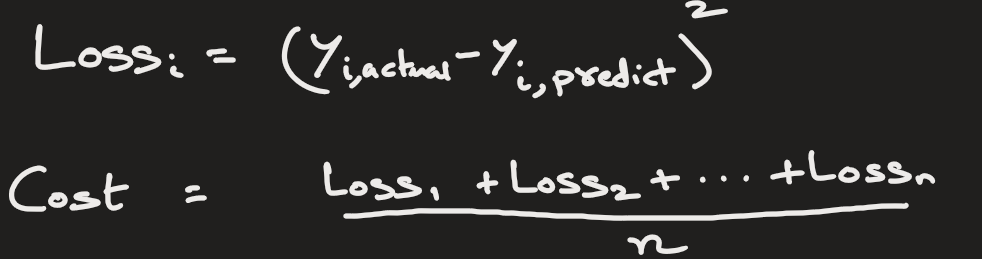 Loss_i = (Y_i,actual - Y_i,predict)^2
Cost = (Loss_1 + Loss_2 + ... + Loss_n) / n